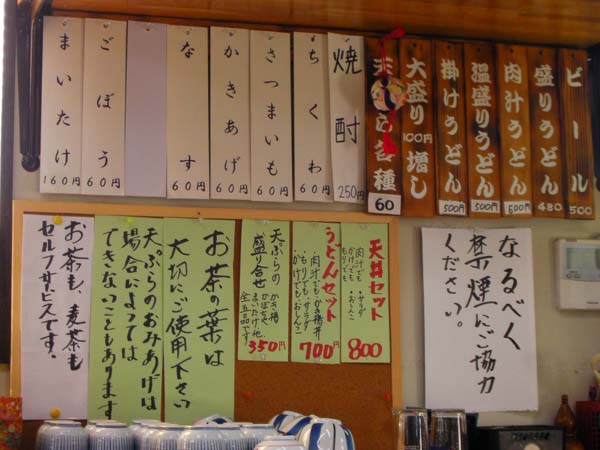 ビール
500
盛りうどん
450
肉汁うどん
500円
温盛りうどん
500円
掛けうどん
500円
大盛り100円増し
各種
60
焼酎
250円
ちくわ
60円
さつまいも
60円
かきあげ
60円
なす
60円
ごぼう
60円
まいたけ
160円
なるべく
禁煙にご協力
ください。
天丼セット
800
うどんセット
700円
天ぷらの
盛り合せ
かき揚
かぼちゃ
まいたけ他
全五品です
350円
お茶の葉は
大切にご使用下さい
天ぷらのおみあげは
場合によっては
できないこともあります
お茶も、麦茶も
セルフサービスです。